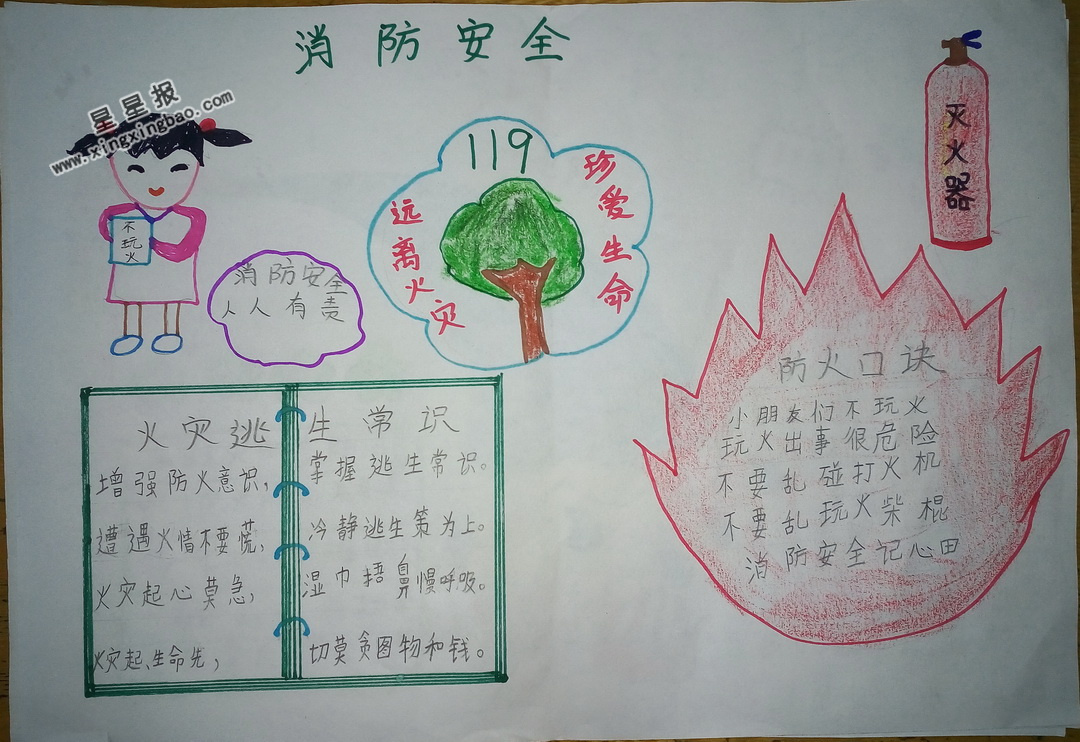 消防安全
星星报
www.xingxingbao.com
不玩火
消防安全
人人有责
119
远离火灾
珍爱生命
灭火器
火灾逃生常识
增强防火意识,掌握逃生常识。
遭遇火情不要慌,冷静逃生策为上。
火灾起心莫急,湿巾捂鼻慢呼吸。
火灾起、生命先,切莫贪图物和钱。
防火口诀
小朋友们不玩火
玩火出事很危险
不要乱碰打火机
不要乱玩火柴棍
消防安全记心田